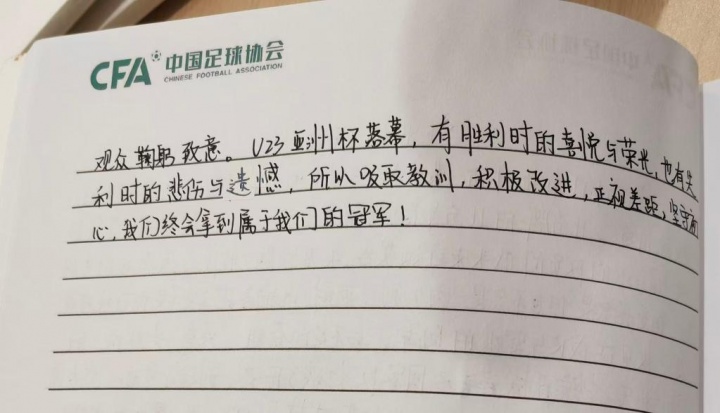 CFA 中国足球协会
CHINESE FOOTBALL ASSOCIATION
观众鞠躬致意。U23亚洲杯落幕,有胜利时的喜悦与荣光,也有失
利时的悲伤与遗憾,所以吸取教训,积极改进,正视差距,坚守初
心,我们终会拿到属于我们的冠军!